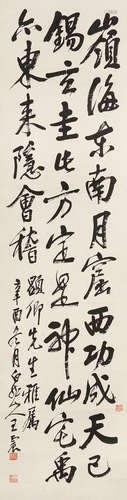 嶺海东南月窟西功成天已
錫玄圭此方定是神仙宅禹
亦東来隱會稽
顕卿先生雅属
辛酉冬月白龍山人王震